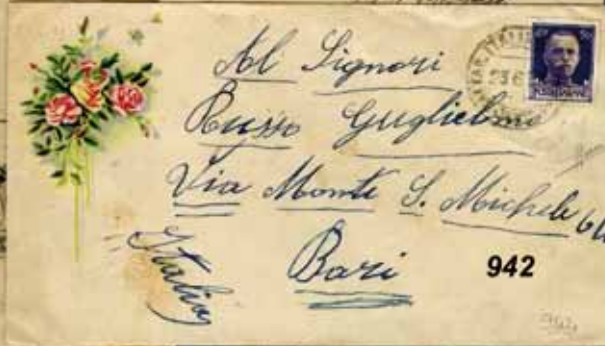 Al Signori
Russo Guglielmo
Via Monte S. Michele
Italia
Bari
942